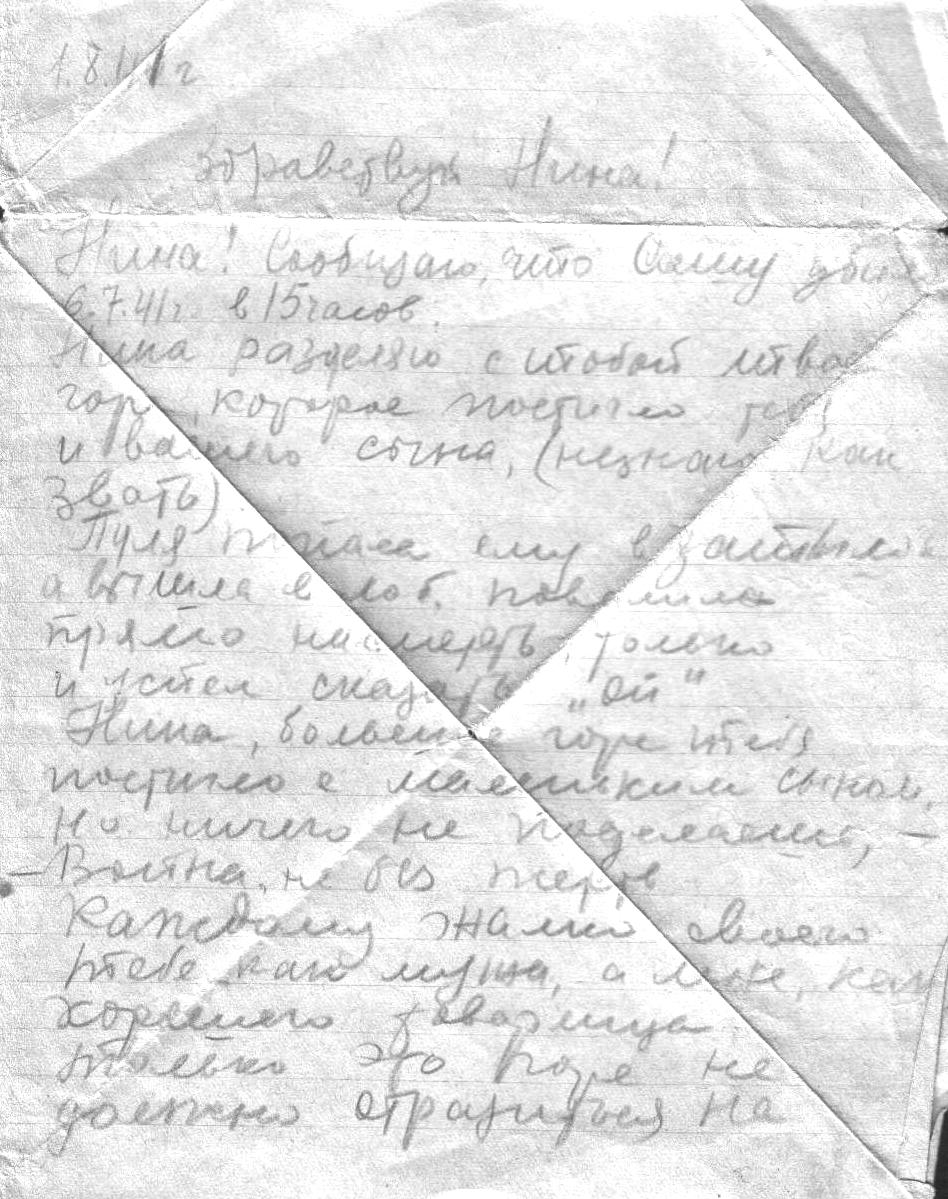 1.8.41г
Здравствуй Нина!
Нина! Сообщаю, что Сашу убили
6.7.41г. в 15 часов.
Нина разделяю с тобой твое
горе, которое постигло тебя
и вашего сына, (незнаю как
звать)
Пуля попала ему в затылок
а вышла в лоб. повалила
прямо насмерть, только
и успел сказать „ой"
Нина, большое горе тебя
постигло с маленьким сыном,
но ничего не поделаешь, –
– Война, не без жертв
Каждому жалко своего
тебе как мужа, а мне, как
хорошего товарища
только это горе не
должно отразиться на